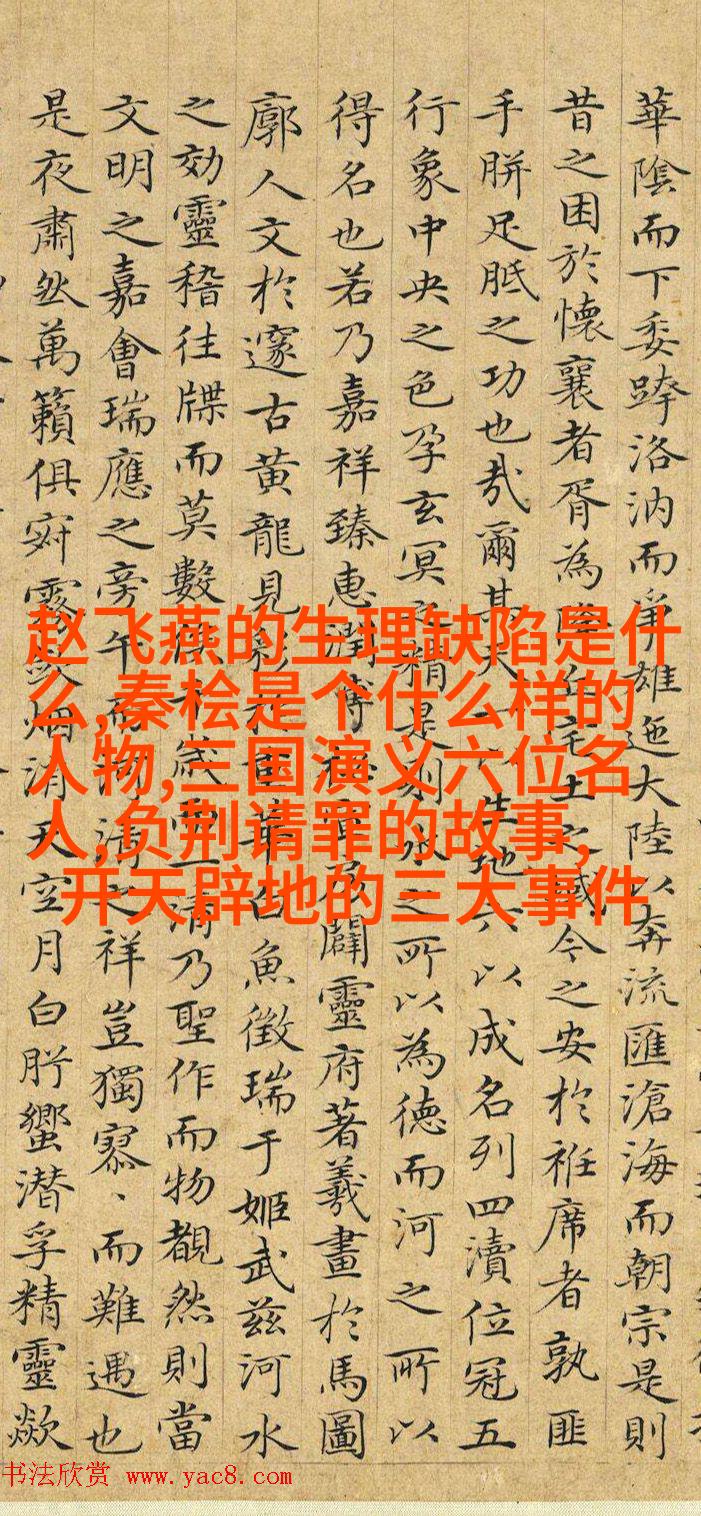 華陰而下委跨洛汭而爭雄迤大陸以奔流匯滄海而朝宗是則
昔之困於懷襄者胥為降丘宅土之域今之安於袵席者孰匪
手胼足胝之功也哉爾其天一以生地六以成名列四瀆位冠五
行象中央之色孕玄冥之精是則水之所以為德而河之所以
得名也若乃嘉祥臻惠潤博乃闢靈府著羲畫於馬圖
廓人文於邃古黃龍見彩於重華白魚徵瑞于姬武茲河水
之効靈稽往牒而莫數歲而一清乃聖作而物覩然則當
文明之嘉會瑞應之旁午而河清之祥豈獨寡、而難遇也
是夜肅然萬籟俱寂霧斂烟消天空月白肸蠁潜孚精靈歘
赵飞燕的生理缺陷是什
么,秦桧是个什么样的
人物,三国演义六位名
人,负荆请罪的故事,
开天辟地的三大事件
书法欣赏 www.yac8.com